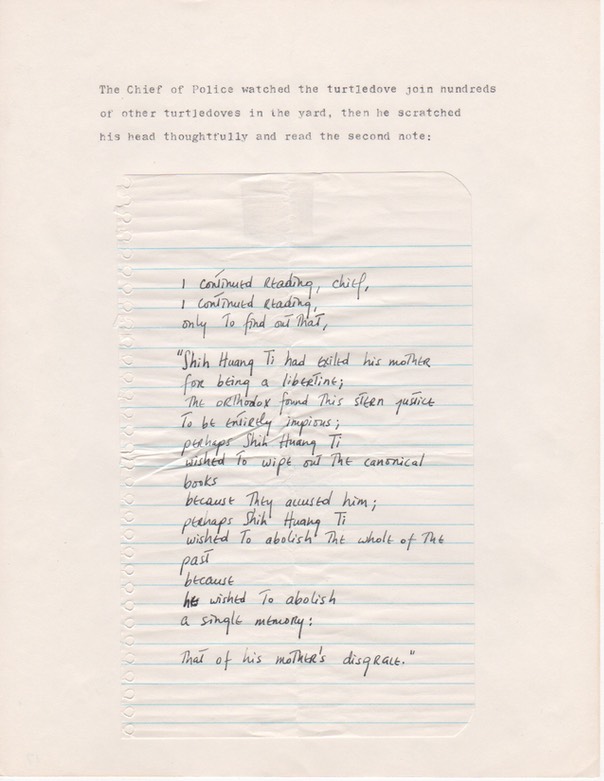 The Chief of Police watched the turtledove join hundreds
of other turtledoves in the yard, then he scratched
his head thoughtfully and read the second note:
I continued reading, chief,
I continued reading,
only to find out that,
"Shih Huang Ti had exiled his mother
for being a libertine;
the orthodox found this stern justice
to be entirely impious;
perhaps Shih Huang Ti
wished to wipe out the canonical
books
because they accused him;
perhaps Shih Huang Ti
wished to abolish the whole of the
past
because
he wished to abolish
a single memory:
that of his mother's disgrace."